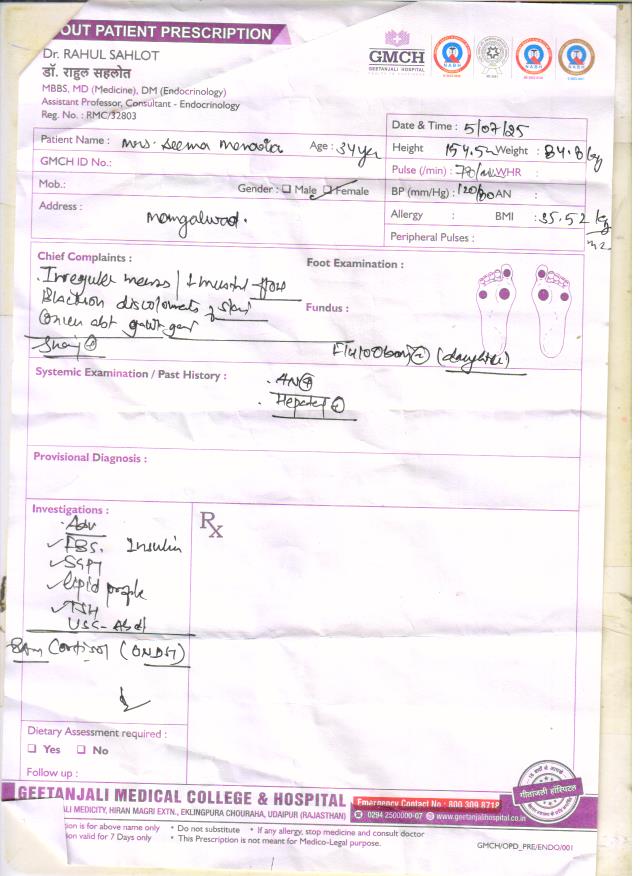 OUT PATIENT PRESCRIPTION
Dr. RAHUL SAHLOT
डॉ. राहुल सहलोत
MBBS, MD (Medicine), DM (Endocrinology)
Assistant Professor, Consultant - Endocrinology
Reg. No. : RMC/32803
GMCH
GEETANJALI HOSPITAL
NABH
NABH
NABH
Date & Time : 5/07/25
Patient Name : Mrs. Seema Menaria Age : 34 yr
Height 154.52 Weight : 84.8 kg
GMCH ID No.:
Pulse (/min) : 78/min WHR :
Mob.: Gender : Male Female
BP (mm/Hg) : 120/80 AN :
Address : Mangalwad.
Allergy : BMI : 35.52 kg/m2
Peripheral Pulses :
Chief Complaints : Foot Examination :
Irregular menses /
Blackish of skin
Fundus :
(daughter)
Systemic Examination / Past History :
AN +
Provisional Diagnosis :
Investigations : Rx
Adv
FBS. Insulin
SGPT
Lipid profile
TSH
USG - Abd
8Am Cortisol (ONDST)
Dietary Assessment required :
Yes No
Follow up :
गीतांजली हॉस्पिटल
GEETANJALI MEDICAL COLLEGE & HOSPITAL Emergency Contact No : 800 309 8718
ALI MEDICITY, HIRAN MAGRI EXTN., EKLINGPURA CHOURAHA, UDAIPUR (RAJASTHAN) 0294 2500000-07 www.geetanjalihospital.co.in
ion is for above name only • Do not substitute • If any allergy, stop medicine and consult doctor
on valid for 7 Days only • This Prescription is not meant for Medico-Legal purpose.
GMCH/OPD_PRE/ENDO/001